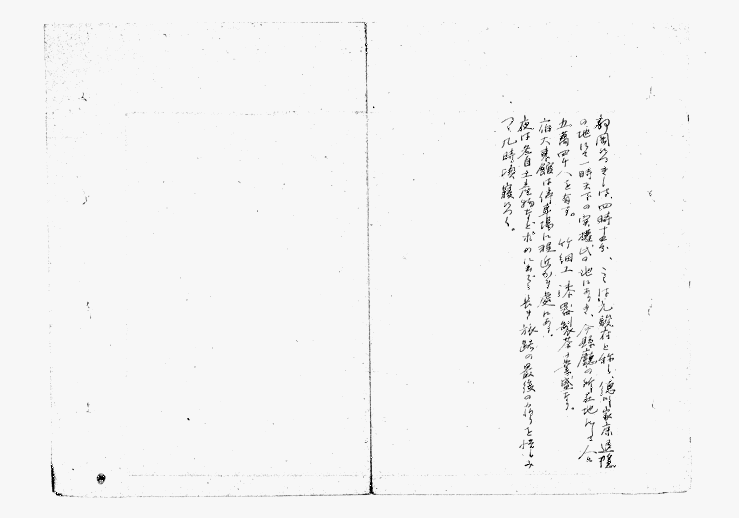 静岡につきしは、四時十五分、こゝは元駿府と称し、徳川家康退隠
の地にて一時天下の実権此の地にありき、今県廳の所在地にて人口
五萬四千八を有す。竹細工漆器製茶業盛なり。
宿大東館は停車場に程近かき處にあり。
夜は各自土産物などを求めに出で長き旅路の最後の夜を惜しみ
つゝ九時頃寝につく。